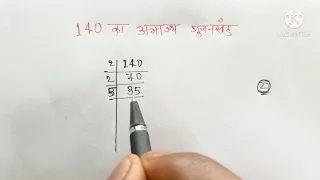 140 का अभाज्य गुणनखंड
2 140
2 70
5 35
2